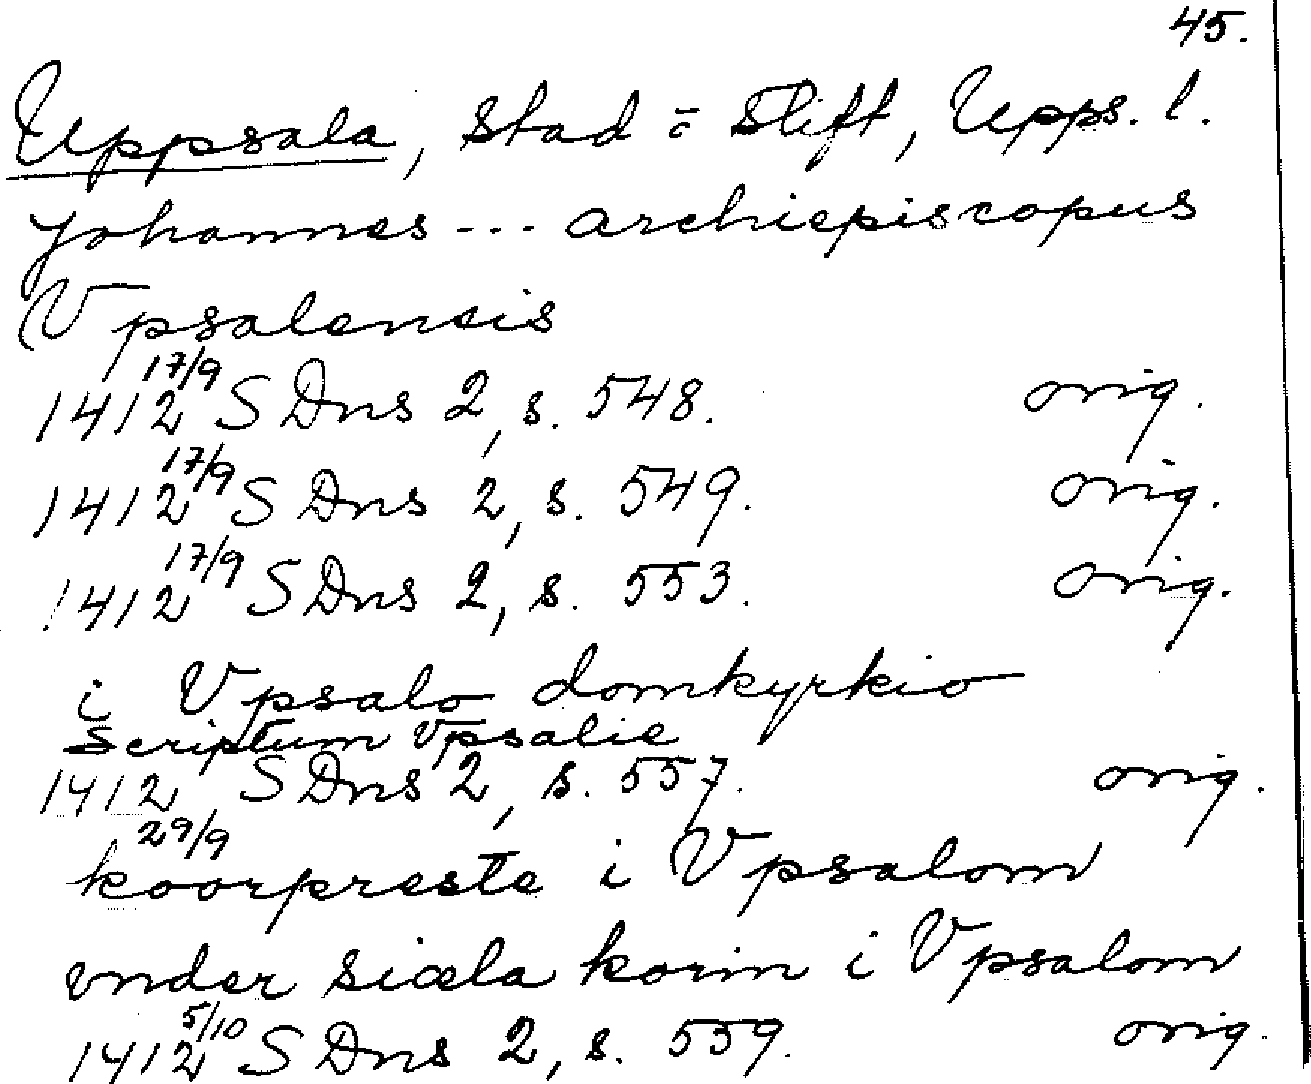 45.
Uppsala, stad o stift, Upps. l.
Johannes --- archiepiscopus
Vpsalensis
1412 17/9 SDns 2, s. 548. orig.
1412 17/9 SDns 2, s. 549. orig.
1412 17/9 SDns 2, s. 553. orig.
i Vpsalo domkyrkio
Scriptum Vpsalie
1412 29/9 SDns 2, s. 557. orig.
koorpreste i Vpsalom
vnder siæla korin i Vpsalom
1412 5/10 SDns 2, s. 559. orig.